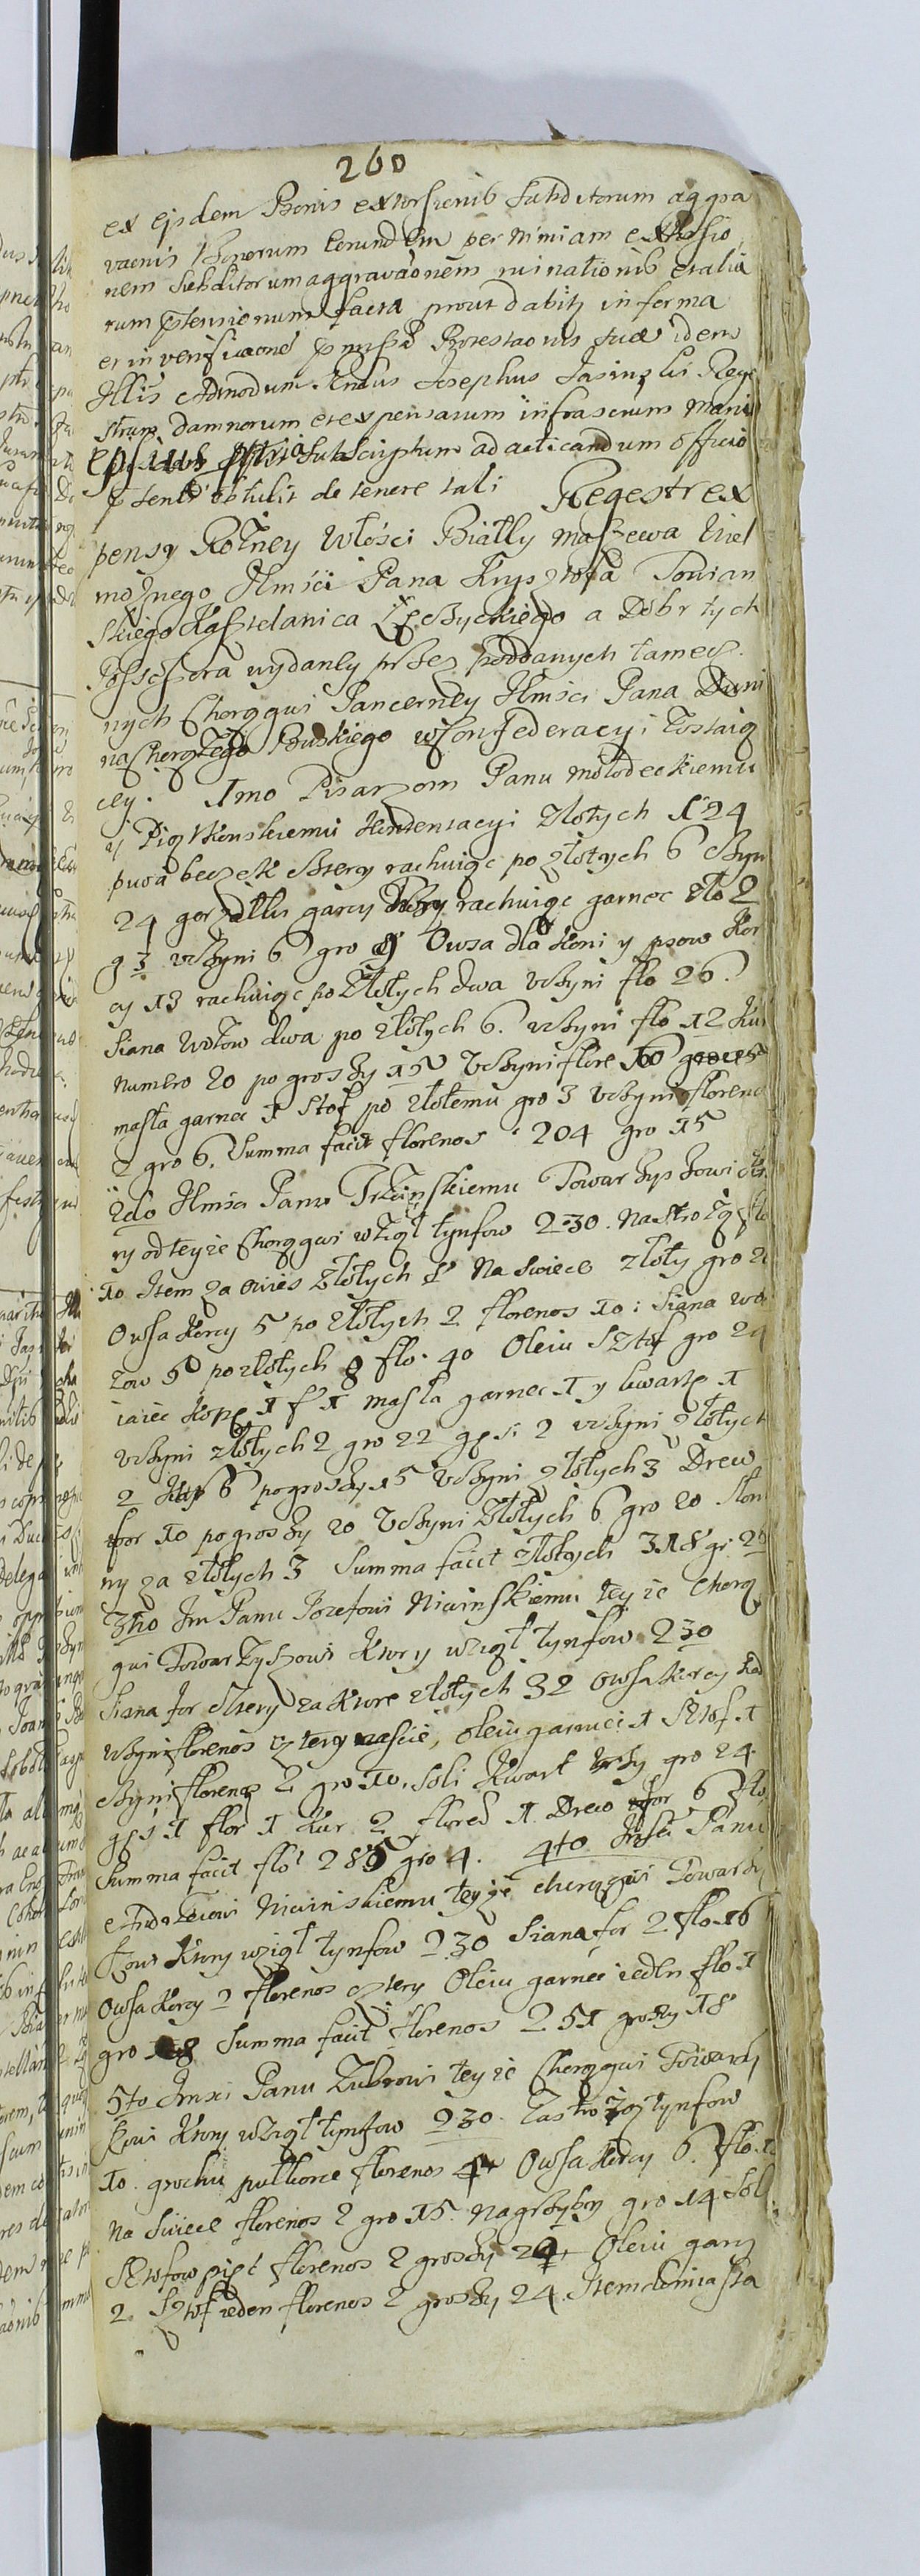 260
ex ejsdem Bonis extorsionib Subditorum aggra
vaōnis Bonorum Eorundem per Nimiam extorsio
nem Subditorum aggravaōnem ruinationib et alia
rum ptensionum facta prout dabit in forma
et in verificaōne pmissa Protestaōnis suae idem
Illis Admodum Rndus Josephus Jasinski Rege
strum damnorum et expensarum infrascrium Mani
ipsius Subscriptum ad acticandum officio
psenti obtulit de tenere tali Regestr ex
pensy Rożney Włości Biały Maszewa Wiel
możnego Jlmści Pana Krysztofa Towian
skiego Kasztelanica Łęczyckiego a Dobr tych
Possessora wydaney przez poddanych tamecz
nych Chorągwi Pancerney Jlmści Pana Duni
na Chorążego Buskiego w Confederacyi Zostaią
cey. 1mo Pisarzom Panu Mołodeckiemu
y Piątkowskiemu Kondensacyi Złotych 124
piwa beczek cztery rachuiąc po złotych 6 czyn
24 gorzałki garcy trzy rachuiąc garnec zło 2
g 3 vczyni 6 gro 9 Owsa dla Koni y psow Kor
cy 13 rachuiąc po Złotych dwa vczyni flo 26.
Siana Wozow dwa po złotych 6. vczyni flo 12 Kur
Numero 20 po groszy 15 Vczyni flore 10
masła garnec 1 Stof po złotemu gro 3 vczyni floreno
2 gro 6. Summa facit florenos 204 gro 15
2do Jlmści Panu Trzcinskiemu Towarzyszowi kto
ry od teyże Chorągwi wziął tynfow 230. Na Strożą flo
10 Item za owies Złotych 8 Na Swiece złoty gro 2
Owsa Korcy 5 po złotych 2 florenos 10: Siana wo
zow 5 po złotych 8 flo. 40 Oleiu Sztof gro 24
iaiec Kopę 1 f 1 Masła garnec 1 y kwartę 1
vczyni złotych 2 gro 22 gęsi 2 vczyni złotych
2 Kap 6 po groszy 15 vczyni złotych 3 Drew
for 10 po groszy 20 Vczyni Złotych 6 gro 20 Słom
ny za złotych 3 Summa facit złotych 318 gr 26
3tio Jm Panu Jozefowi Niwinskiemu teyże Chorą
gwi Towarzyszowi Ktory wziął tynfow 230
Siana for cztery za Ktore złotych 32 Owsa Korcy
vczyni florenos czternascie, oleiu garniec 1 Sztof 1
czyni florenos 2 gro 10, Soli Kwart trzy gro 24.
gęś 1 flor 1 Kur 2 flored 1. Drew for 6 flo
Summa facit flo 285 gro 4. 4to Jmści Panu
Andrzeiowi Niwinskiemu teyże chorągwi Towarzy
szowi Ktory wziął tynfow 230 Siana for 2 flo 16
Owsa Korcy 2 florenos cztery Oleiu garnec ieden flo 1
gro 18 Summa facit florenos 251 groszy 18
5to Jmsci Panu Zubrowi teyże Chorągwi Towarzy
szowi Ktory wziął tynfow 230. Za strożą tynfow
10. grochu pułkorce florenos 4 Owsa Korcy 6. flo.
Na Swiece florenos 2 gro 15. Na grzyby gro 14 Sol
Sztofow pięt florenos 2 groszy 24 Oleiu garn
2. Sztof ieden florenos 2 groszy 24. Item do miasta